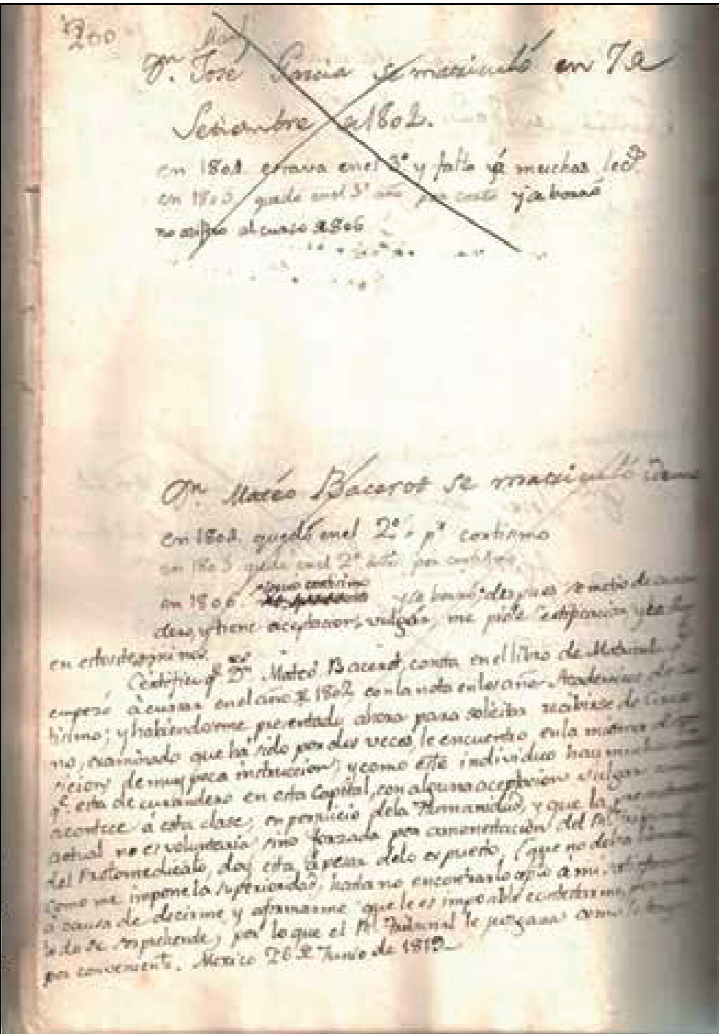 200
Dn. José Garcia se matriculó en 7 de
Setiembre de 1802.
en 1802. estava en el 3º y falto ya muchas lecs.
en 1805 quedo en el 3º año por corto y se borró
no asistio al curso de 1806
Dn. Mateo Bacerot se matriculó idem
en 1802. quedó en el 2º. pr. cortisimo
en 1805 quedo en el 2º año por cortisimo
en 1806. siguio cortisimo y se borró; despues se metio de curan
dero, y tiene aceptacion vulgar, me pide Certificacion y se la
en estos terminos.
Certifico qe. Dn. Mateo Bacerot, consta en el libro de Matriculas qe.
empezó á cursar en el año de 1802 con la nota en los años Academicos de cor
tisimo; y habiendome presentado ahora para solicitar recibirse de Ciruja
no, examinado que há sido por dos veces, le encuentro en la misma dispo
sicion, de muy poca instruccion, y como este individuo hay muchos
qe. esta de curandero en esta Capital, con alguna aceptacion vulgar como
acontece á esta clase, en perjuicio de la Humanidad, y que la presentacion
actual no es voluntaria, sino forzada por amonestación del Rl. Tribunal
del Protomedicato, doy esta á pesar de lo expuesto, (que no debia
como me impone la superioridad, hasta no encontrarlo apto á mi satisfaccion
á causa de decirme, y afirmarme que le es imposible contestarme, por
lo que el Rl. Tribunal le juzgara como le tenga
por conveniente. Mexico 26 de Junio de 1812